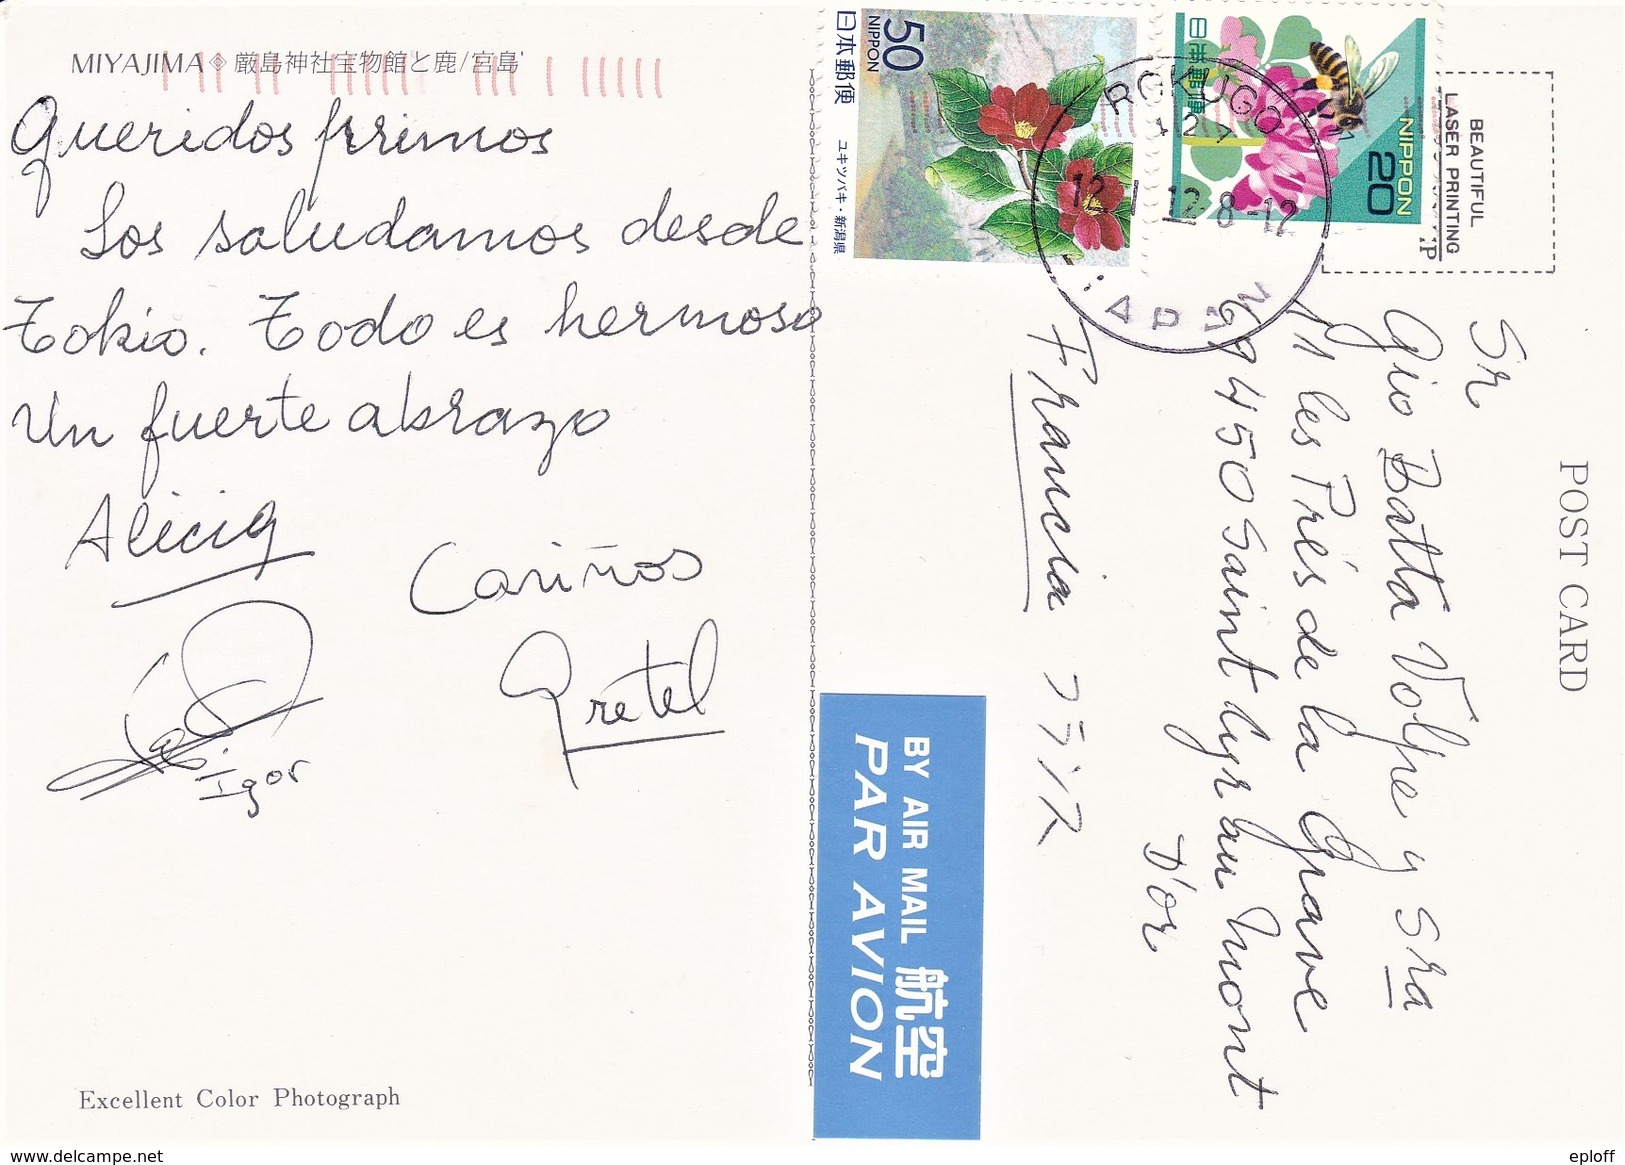 MIYAJIMA◈厳島神社宝物館と鹿/宮島
Queridos primos
Los saludamos desde
Tokio. Todo es hermoso
Un fuerte abrazo
Alicia
Cariños
Gretel
Igor
Excellent Color Photograph
50
NIPPON
日本郵便
ユキツバキ・新潟県
日本郵便
NIPPON
20
ROKUGO
421
12.8-12
JAPAN
BEAUTIFUL
LASER PRINTING
POST CARD
Sr
Gio Batta Volpe y Sra
11 les Prés de la Grave
69450 Saint Cyr au Mont
D'or
Francia フランス
BY AIR MAIL 航空
PAR AVION
delcampe.net
eploff